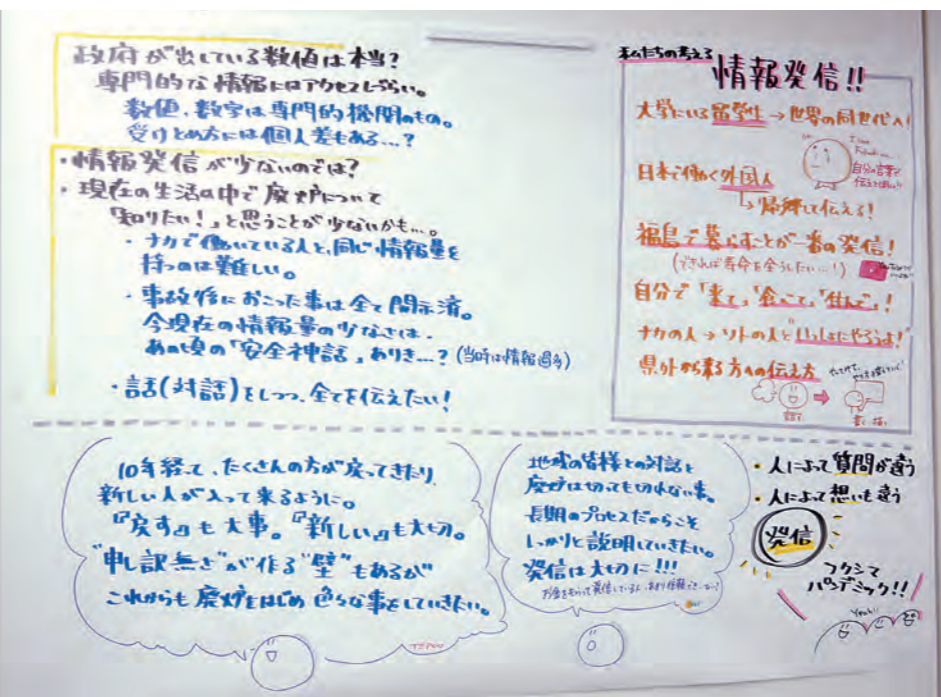 政府が出している数値は本当?
専門的な情報にはアクセスしづらい。
数値、数字は専門的機関のもの。
受けとめ方には個人差もある…?
・情報発信が少ないのでは?
・現在の生活の中で廃炉について
「知りたい!」と思うことが少ないかも…。
・ナカで働いている人と、同じ情報量を
持つのは難しい。
・事故後におこった事は全て開示済。
今現在の情報量の少なさは、
あの頃の「安全神話」ありき…?(当時は情報過多)
・話(対話)をしつつ、全てを伝えたい!
私たちの考える
情報発信!!
大学にいる留学生→世界の同世代へ!
自分の言葉で
伝えてほしい!
日本で働く外国人
↳帰郷して伝える!
福島で暮らすことが一番の発信!
(できれば寿命を全うしたい…!)
自分で「来て」「食べて」「住んで」!
ナカの人→ソトの人といっしょにやろうよ!
県外から来る方への伝え方
話す
書く・描く
10年経って、たくさんの方が戻ってきたり
新しい人が入って来るように。
『戻す』も大事。『新しい』も大切。
"申し訳無さ"が作る"壁"もあるが
これからも廃炉をはじめ色々な事をしていきたい。
TEPCO
地域の皆様との対話と
廃炉は切っても切れない事。
長期のプロセスだからこそ
しっかりと説明していきたい。
発信は大切に!!!
・人によって質問が違う
・人によって想いも違う
発信
フクシマ
パンデミック!!
Yeah!!